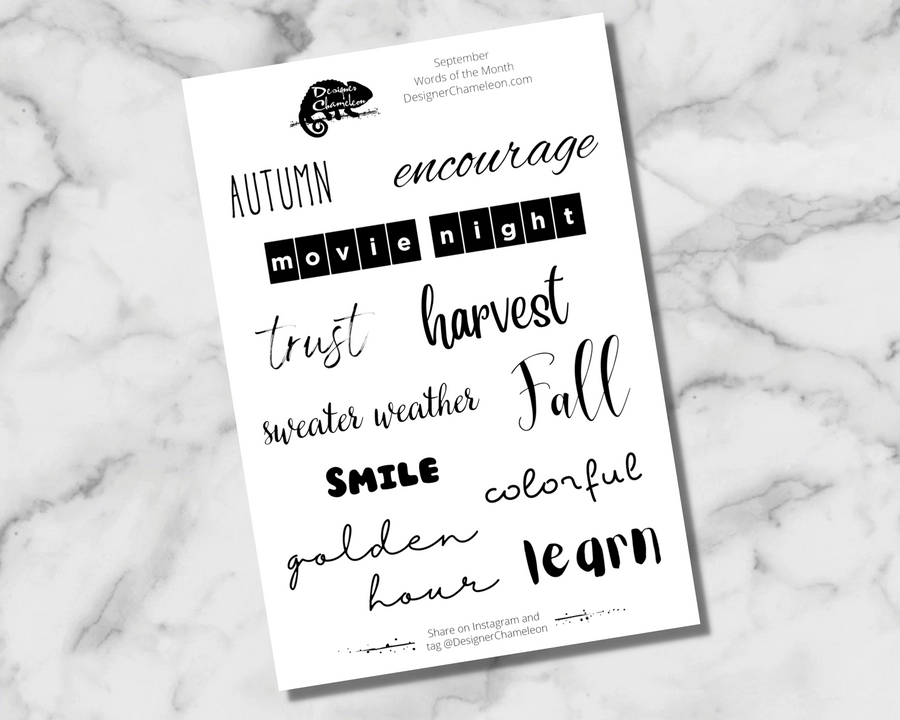 Designer
Chameleon
September
Words of the Month
DesignerChameleon.com
AUTUMN
encourage
movie night
trust
harvest
sweater weather
Fall
SMILE
colorful
golden
hour
learn
Share on Instagram and
tag @DesignerChameleon